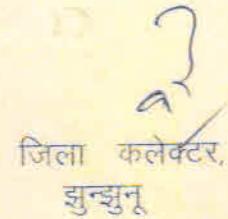 जिला कलेक्टर,
झुन्झुनू